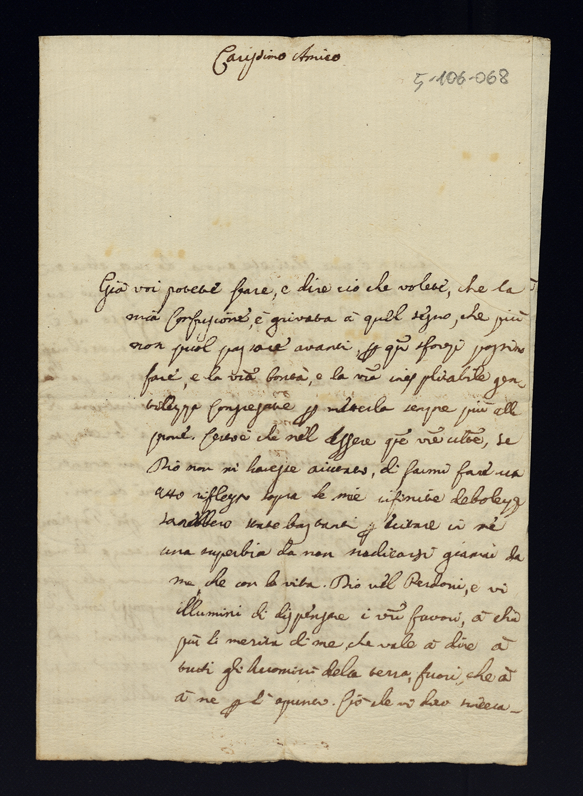 Carissimo Amico
5-106-068
Già voi potete fare, e dire ciò che volete, che la
mia Confusione, è arivata à quel segno, che più
non puol passare avanti, qti sforzi possino
fare, e la vra bontà, e la vra inesplicabile gen-
tilezza
sempre più
Certo che nell essere qte vre, se
Dio non mi havesse aiutato, di farmi fare un
atto riflesso sopra le mie infinite debolezze
state bastanti in me
una superbia da non sradicarsi giamai da
me che con la vita. Dio vel Perdoni, e vi
illumini di dispensare i vri favori, à chi
più li merita di me, che vale à dire à
tutti gli huomini della terra, fuori, che à
à me Ciò che vi devo